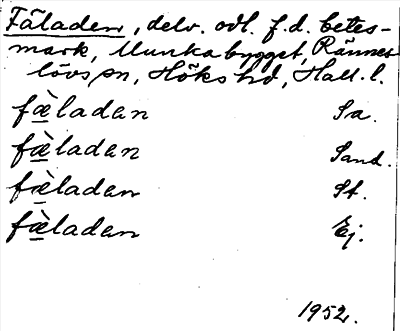 Fäladen, delv. odl. f.d. betes-
mark, Munkabygget, Rännes-
lövs sn, Höks hd, Hall. l.
fæ̀laden Sa.
fæ̀laden Sand.
fæ̀laden St.
fæ̀laden Ej.
1952.